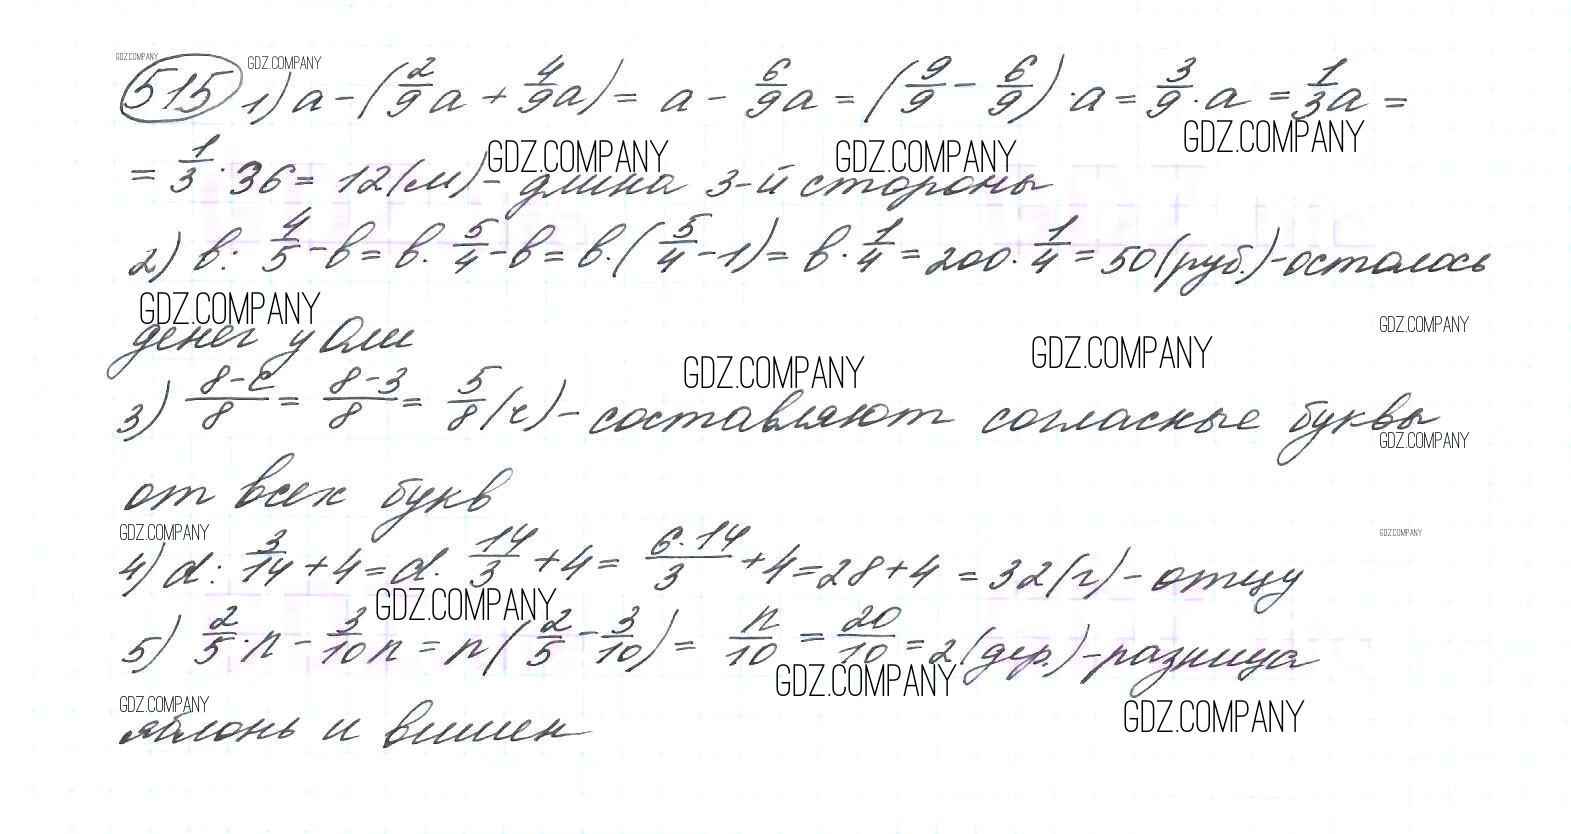 GDZ.COMPANY GDZ.COMPANY
515 1) a - (2/9 a + 4/9 a) = a - 6/9 a = (9/9 - 6/9) · a = 3/9 · a = 1/3 a =
GDZ.COMPANY GDZ.COMPANY GDZ.COMPANY
= 1/3 · 36 = 12 (м) - длина 3-й стороны
2) b : 4/5 - b = b · 5/4 - b = b · (5/4 - 1) = b · 1/4 = 200 · 1/4 = 50 (руб.) - осталось
GDZ.COMPANY GDZ.COMPANY
денег у Оли
GDZ.COMPANY GDZ.COMPANY
3) 8-c/8 = 8-3/8 = 5/8 (ч) - составляют согласные буквы
GDZ.COMPANY
от всех букв
GDZ.COMPANY GDZ.COMPANY
4) d : 3/14 + 4 = d · 14/3 + 4 = 6·14/3 + 4 = 28 + 4 = 32 (г) - отцу
GDZ.COMPANY
5) 2/5 · n - 3/10 n = n (2/5 - 3/10) = n/10 = 20/10 = 2 (дер.) - разница
GDZ.COMPANY GDZ.COMPANY GDZ.COMPANY
яблонь и вишен